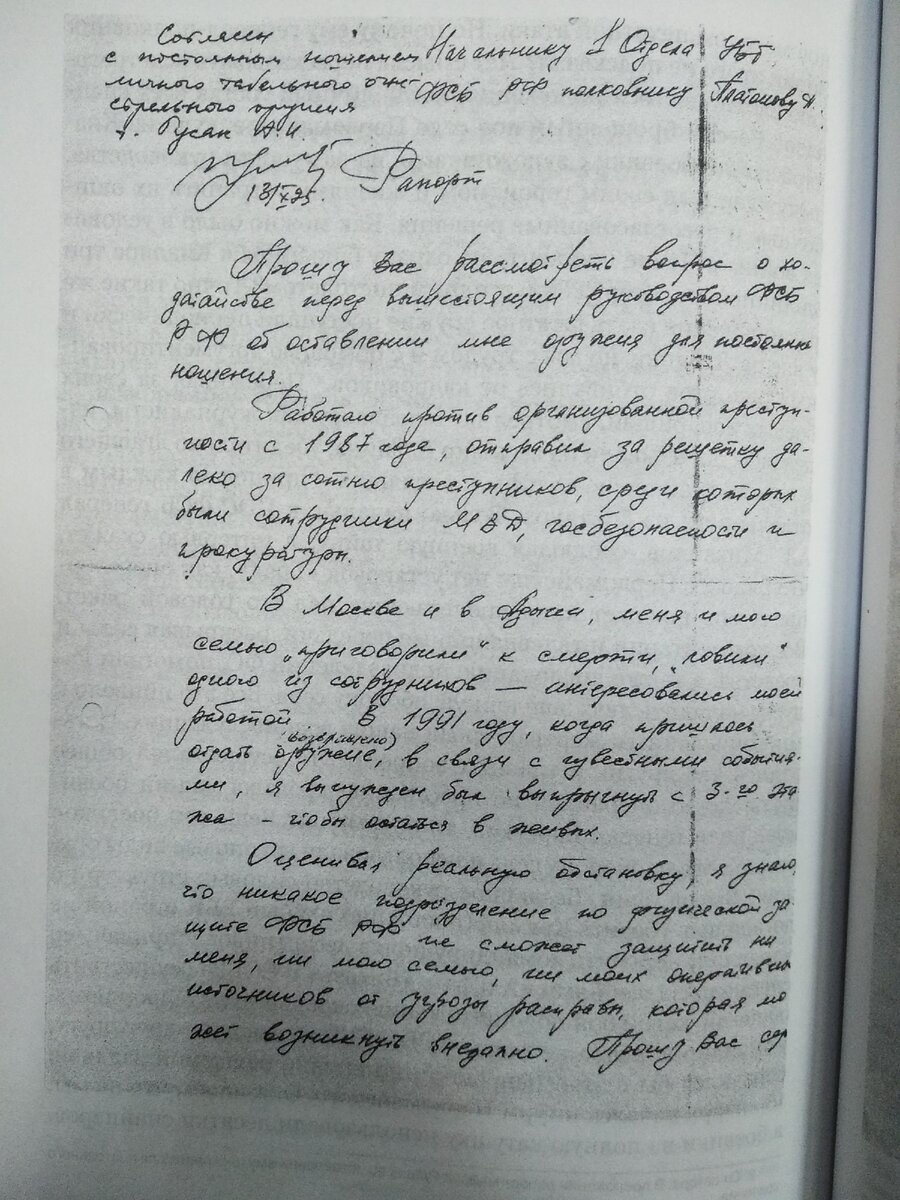 Согласен
с постоянным ношением
личного табельного огне
стрельного оружия
Гусак А.И.
13/X 95.
Начальнику 1 Отдела УБТ
ФСБ РФ полковнику Платонову
Рапорт
Прошу Вас рассмотреть вопрос о хо-
датайстве перед вышестоящим руководством ФСБ
РФ об оставлении мне оружия для постоянн
ношения.
Работаю против организованной преступ-
ности с 1987 года, отправил за решетку да-
леко за сотню преступников, среди которых
были сотрудники МВД, госбезопасности и
прокуратуры.
В Москве и в Адыгеи, меня и мою
семью „приговорили" к смерти, „ловили"
одного из сотрудников — интересовались моей
работой. В 1991 году, когда пришлось
(возвращено)
отдать оружие, в связи с известными события-
ми, я вынужден был выпрыгнуть с 3-го эта
жа - чтобы остаться в живых.
Оценивая реальную обстановку, я знаю,
что никакое подразделение по физической за
щите ФСБ РФ не сможет защитить ни
меня, ни мою семью, ни моих оперативных
источников от угрозы расправы, которая мо
жет возникнуть внезапно. Прошу Вас